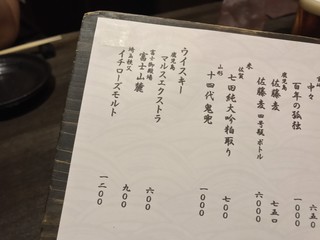 中々 六五〇
百年の孤独 一〇〇〇
鹿児島
佐藤 麦 七五〇
佐藤 麦 四号瓶 ボトル 六〇〇〇
米
佐賀
七田純大吟粕取り 七〇〇
山形
十四代鬼兜 一〇〇〇
ウイスキー
鹿児島
マルスエクストラ 六〇〇
富士御殿場
富士山麓 九〇〇
埼玉秩父
イチローズモルト 一二〇〇